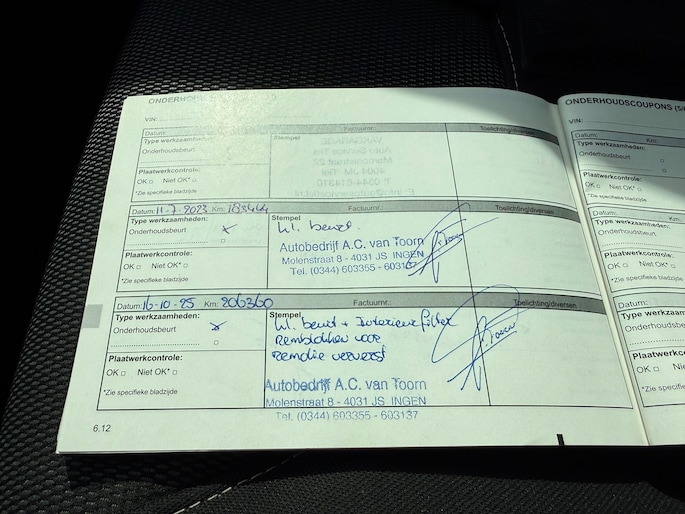 ONDERHOUDSCOUPONS (5/
VIN:
VIN:
Datum: Factuurnr.: Toelichting/diversen
Type werkzaamheden: Stempel
Onderhoudsbeurt
Plaatwerkcontrole:
OK Niet OK*
*Zie specifieke bladzijde
Datum: 11-7-2023 Km: Factuurnr.: Toelichting/diversen
Type werkzaamheden: Stempel
Onderhoudsbeurt x kl. beurt
Autobedrijf A.C. van Toorn
Plaatwerkcontrole: Molenstraat 8 - 4031 JS INGEN
OK Niet OK* Tel. (0344) 603355 - 603137
*Zie specifieke bladzijde
Datum: 16-10-25 Km: 206360 Factuurnr.: Toelichting/diversen
Type werkzaamheden: Stempel kl. beurt + Interieurfilter
Onderhoudsbeurt x Remblokken voor
remolie ververst
Plaatwerkcontrole:
OK Niet OK* Autobedrijf A.C. van Toorn
*Zie specifieke bladzijde Molenstraat 8 - 4031 JS INGEN
Tel. (0344) 603355 - 603137
6.12
Datum: Km:
Type werkzaamheden:
Onderhoudsbeurt
Plaatwerkcontrole:
OK Niet OK*
*Zie specifieke bladzijde
Datum: Km:
Type werkzaamheden:
Onderhoudsbeurt
Plaatwerkcontrole:
OK Niet OK*
*Zie specifieke
Datum:
Type werkzaamhe
Onderhoudsbeurt
Plaatwerkcontro
OK Niet OK
*Zie specifieke bla